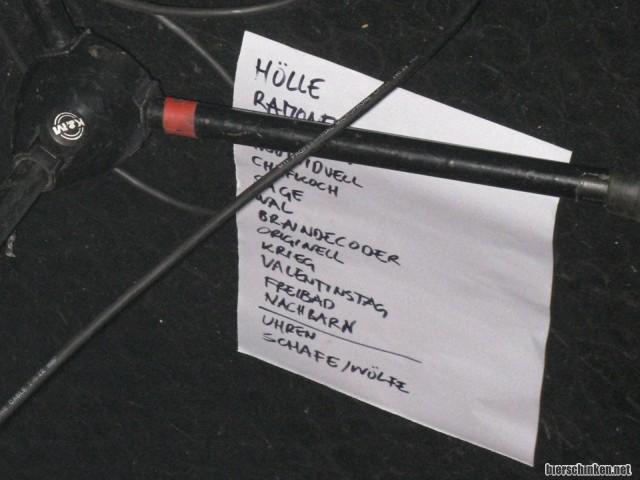 HÖLLE
CHEFKOCH
WAL
BRAINDECODER
ORIGINELL
KRIEG
VALENTINSTAG
FREIBAD
NACHBARN
UHREN
SCHAFE/WÖLFE
K&M
bierschinken.net